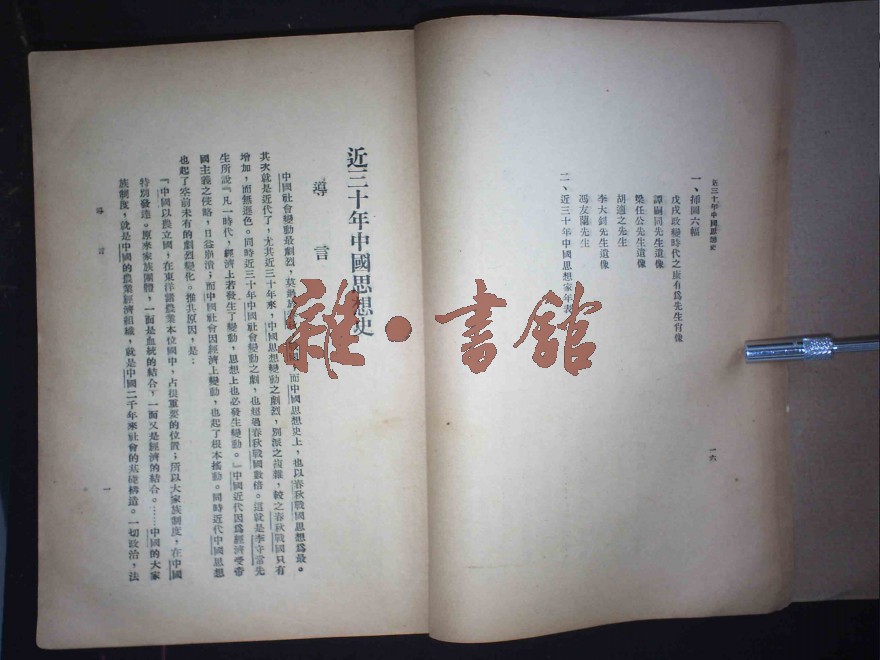 近三十年中國思想史
一、插圖六幅
戊戌政變時代之康有爲先生肖像
譚嗣同先生遺像
梁任公先生遺像
胡適之先生
李大釗先生遺像
馮友蘭先生
二、近三十年中國思想家年表
一六
近三十年中國思想史
導言
中國社會變動最劇烈，莫過於 而中國思想史上，也以春秋戰國思想爲最。
其次就是近代了，尤其近三十年來，中國思想變動之劇烈，別派之複雜，較之春秋戰國只有
增加，而無遜色。同時近三十年中國社會變動之劇，也超過春秋戰國數倍。這就是李守常先
生所說『凡一時代，經濟上若發生了變動，思想上也必發生變動。』中國近代因爲經濟受帝
國主義之侵略，日益崩潰；而中國社會因經濟上變動，也起了根本搖動。同時近代中國思想
也起了空前未有的劇烈變化。推其原因，是：
『中國以農立國，在東洋諸農業本位國中，占很重要的位置；所以大家族制度，在中國
特別發達。原來家族團體，一面是血統的結合，一面又是經濟的結合。……中國的大家
族制度，就是中國的農業經濟組織，就是中國二千年來社會的基礎構造。一切政治，法
導言
一
雜·書館